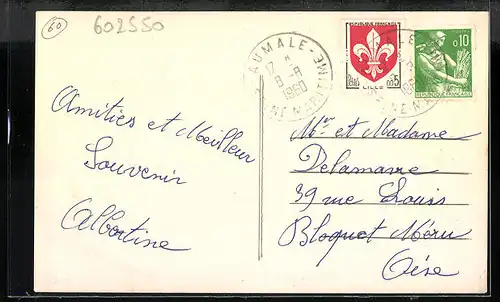 60
602550
AUMALE
17 H
8-8
1960
SEINE MARITIME
RÉPUBLIQUE FRANÇAISE
0,05
LILLE
0,10
RÉPUBLIQUE FRANÇAISE
Amitiés et Meilleur
Souvenir
Albertine
Mr et Madame
Delamarre
39 rue Louis
Bloquet Méru
Oise